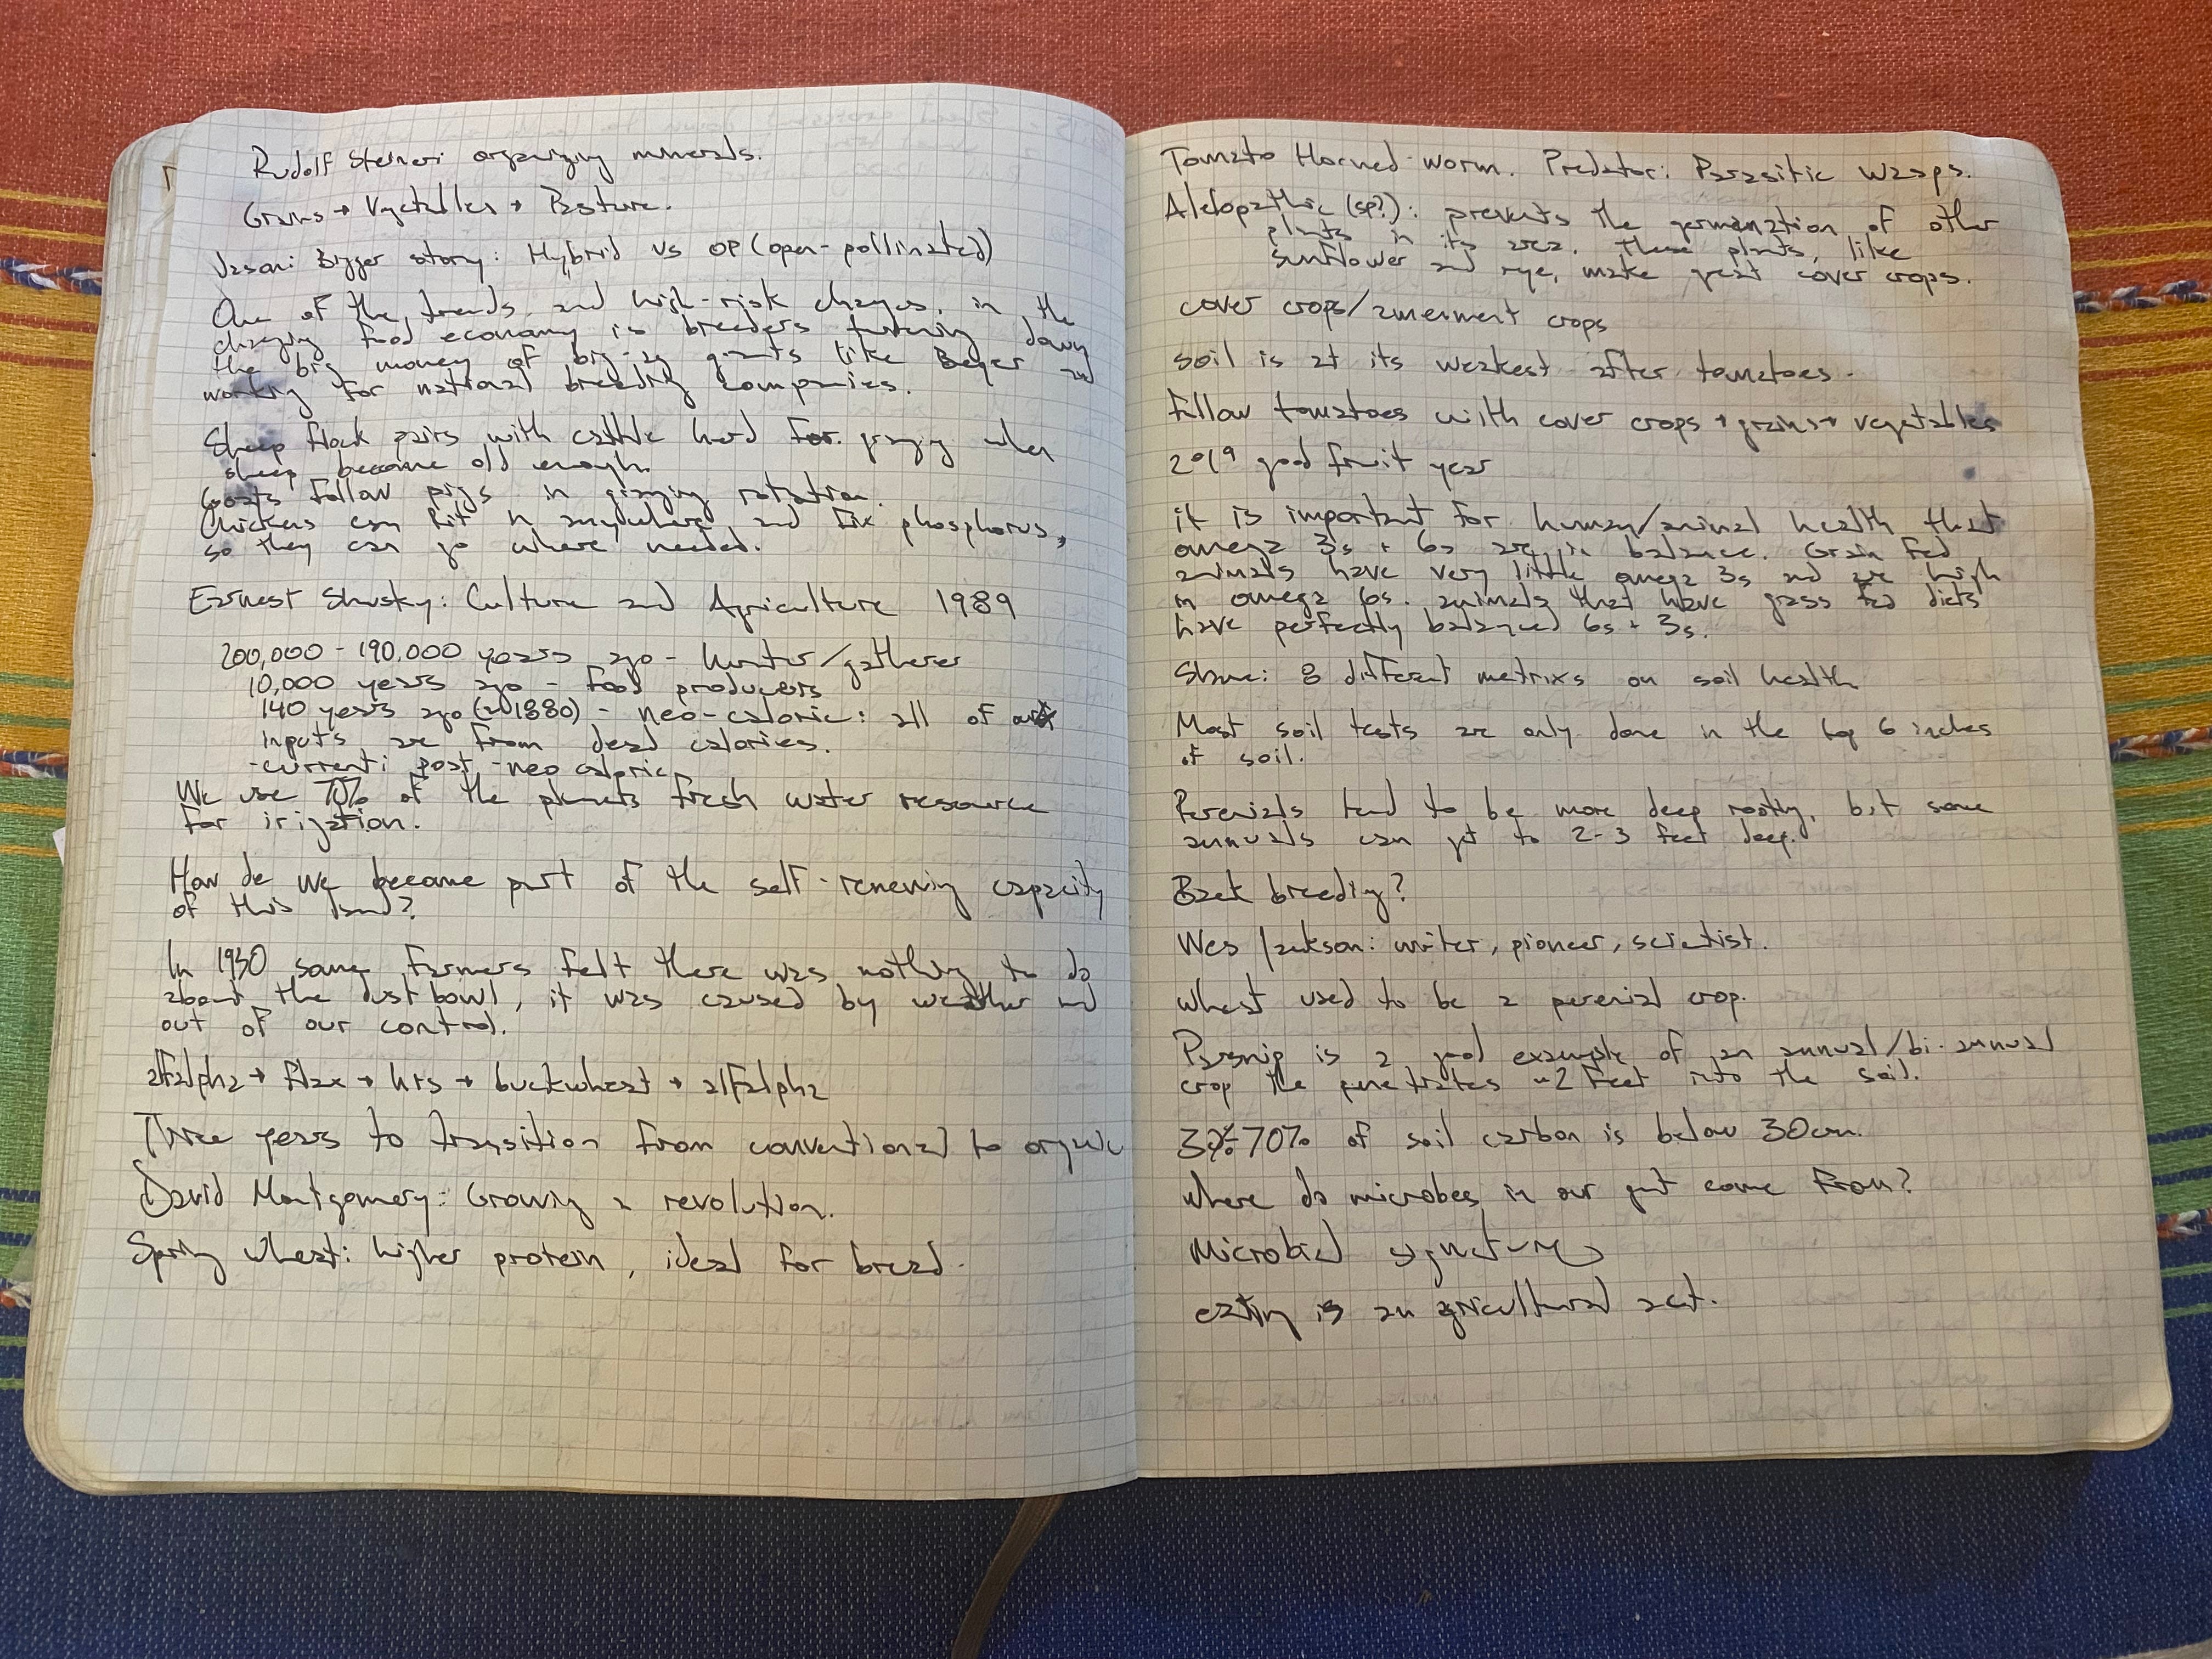 Rudolf Steiner: organizing minerals.
Grains → Vegetables → Pasture.
Jason: Bigger story: Hybrid vs OP (open-pollinated)
One of the trends and high-risk changes, in the
changing food economy is breeders turning down
the big money of big-ag giants like Bayer and
working for national breeding companies.
Sheep flock pairs with cattle herd for grazing when
sheep become old enough.
Goats follow pigs in grazing rotation.
Chickens can fit in anywhere, and fix phosphorus,
so they can go where needed.
Earnest Shusky: Culture and Agriculture 1989
200,000 - 190,000 years ago - hunter/gatherer
10,000 years ago - food producers
140 years ago (~1880) - neo-caloric: all of our
inputs are from dead calories.
-current: post-neo caloric
We use 70% of the planets fresh water resource
for irigation.
How do we become part of the self-renewing capacity
of this land?
In 1930 some farmers felt there was nothing to do
about the dust bowl, it was caused by weather and
out of our control.
alfalpha → flax → hrs → buckwheat → alfalpha
Three years to transition from conventional to organic
David Montgomery: Growing a revolution.
Spring wheat: higher protein, ideal for bread.
Tomato Horned-worm. Predator: Parasitic Wasps.
Alelopathic (sp?): prevents the germanation of other
plants in its area. These plants, like
sunflower and rye, make great cover crops.
cover crops/amenment crops
soil is at its weakest after tomatoes.
Follow tomatoes with cover crops → grains → vegetables
2019 good fruit year
it is important for human/animal health that
omega 3s + 6s are in balance. Grain fed
animals have very little omega 3s and are high
in omega 6s. animals that have grass fed diets
have perfectly balanced 6s + 3s.
8 different metrixs on soil health
Most soil tests are only done in the top 6 inches
of soil.
Perenials tend to be more deep rooting, but some
annuals can get to 2-3 feet deep.
Back breeding?
Wes Jackson: writer, pioneer, scientist.
wheat used to be a perenial crop.
Parsnip is a good example of an annual/bi-annual
crop the penetrates ~2 feet into the soil.
30%-70% of soil carbon is below 30cm.
where do microbes in our gut come from?
Microbial signatures
eating is an agricultural act.